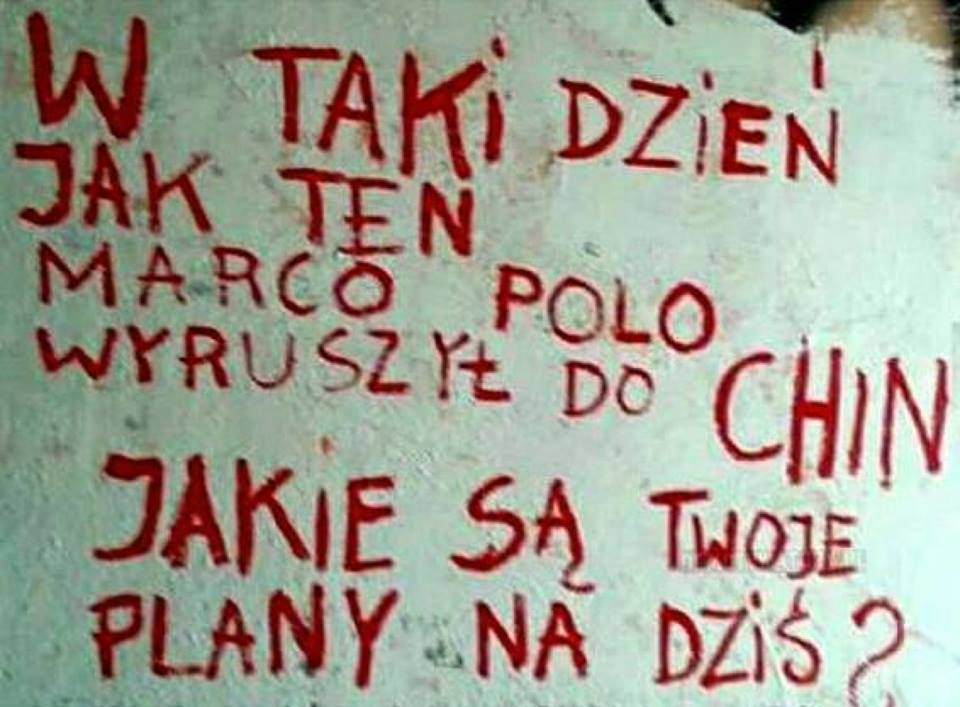 W TAKi DZiEŃ
JAK TEN
MARCO POLO
WYRUSZYŁ DO CHIN
JAKiE SĄ TWOJE
PLANY NA DZiŚ?